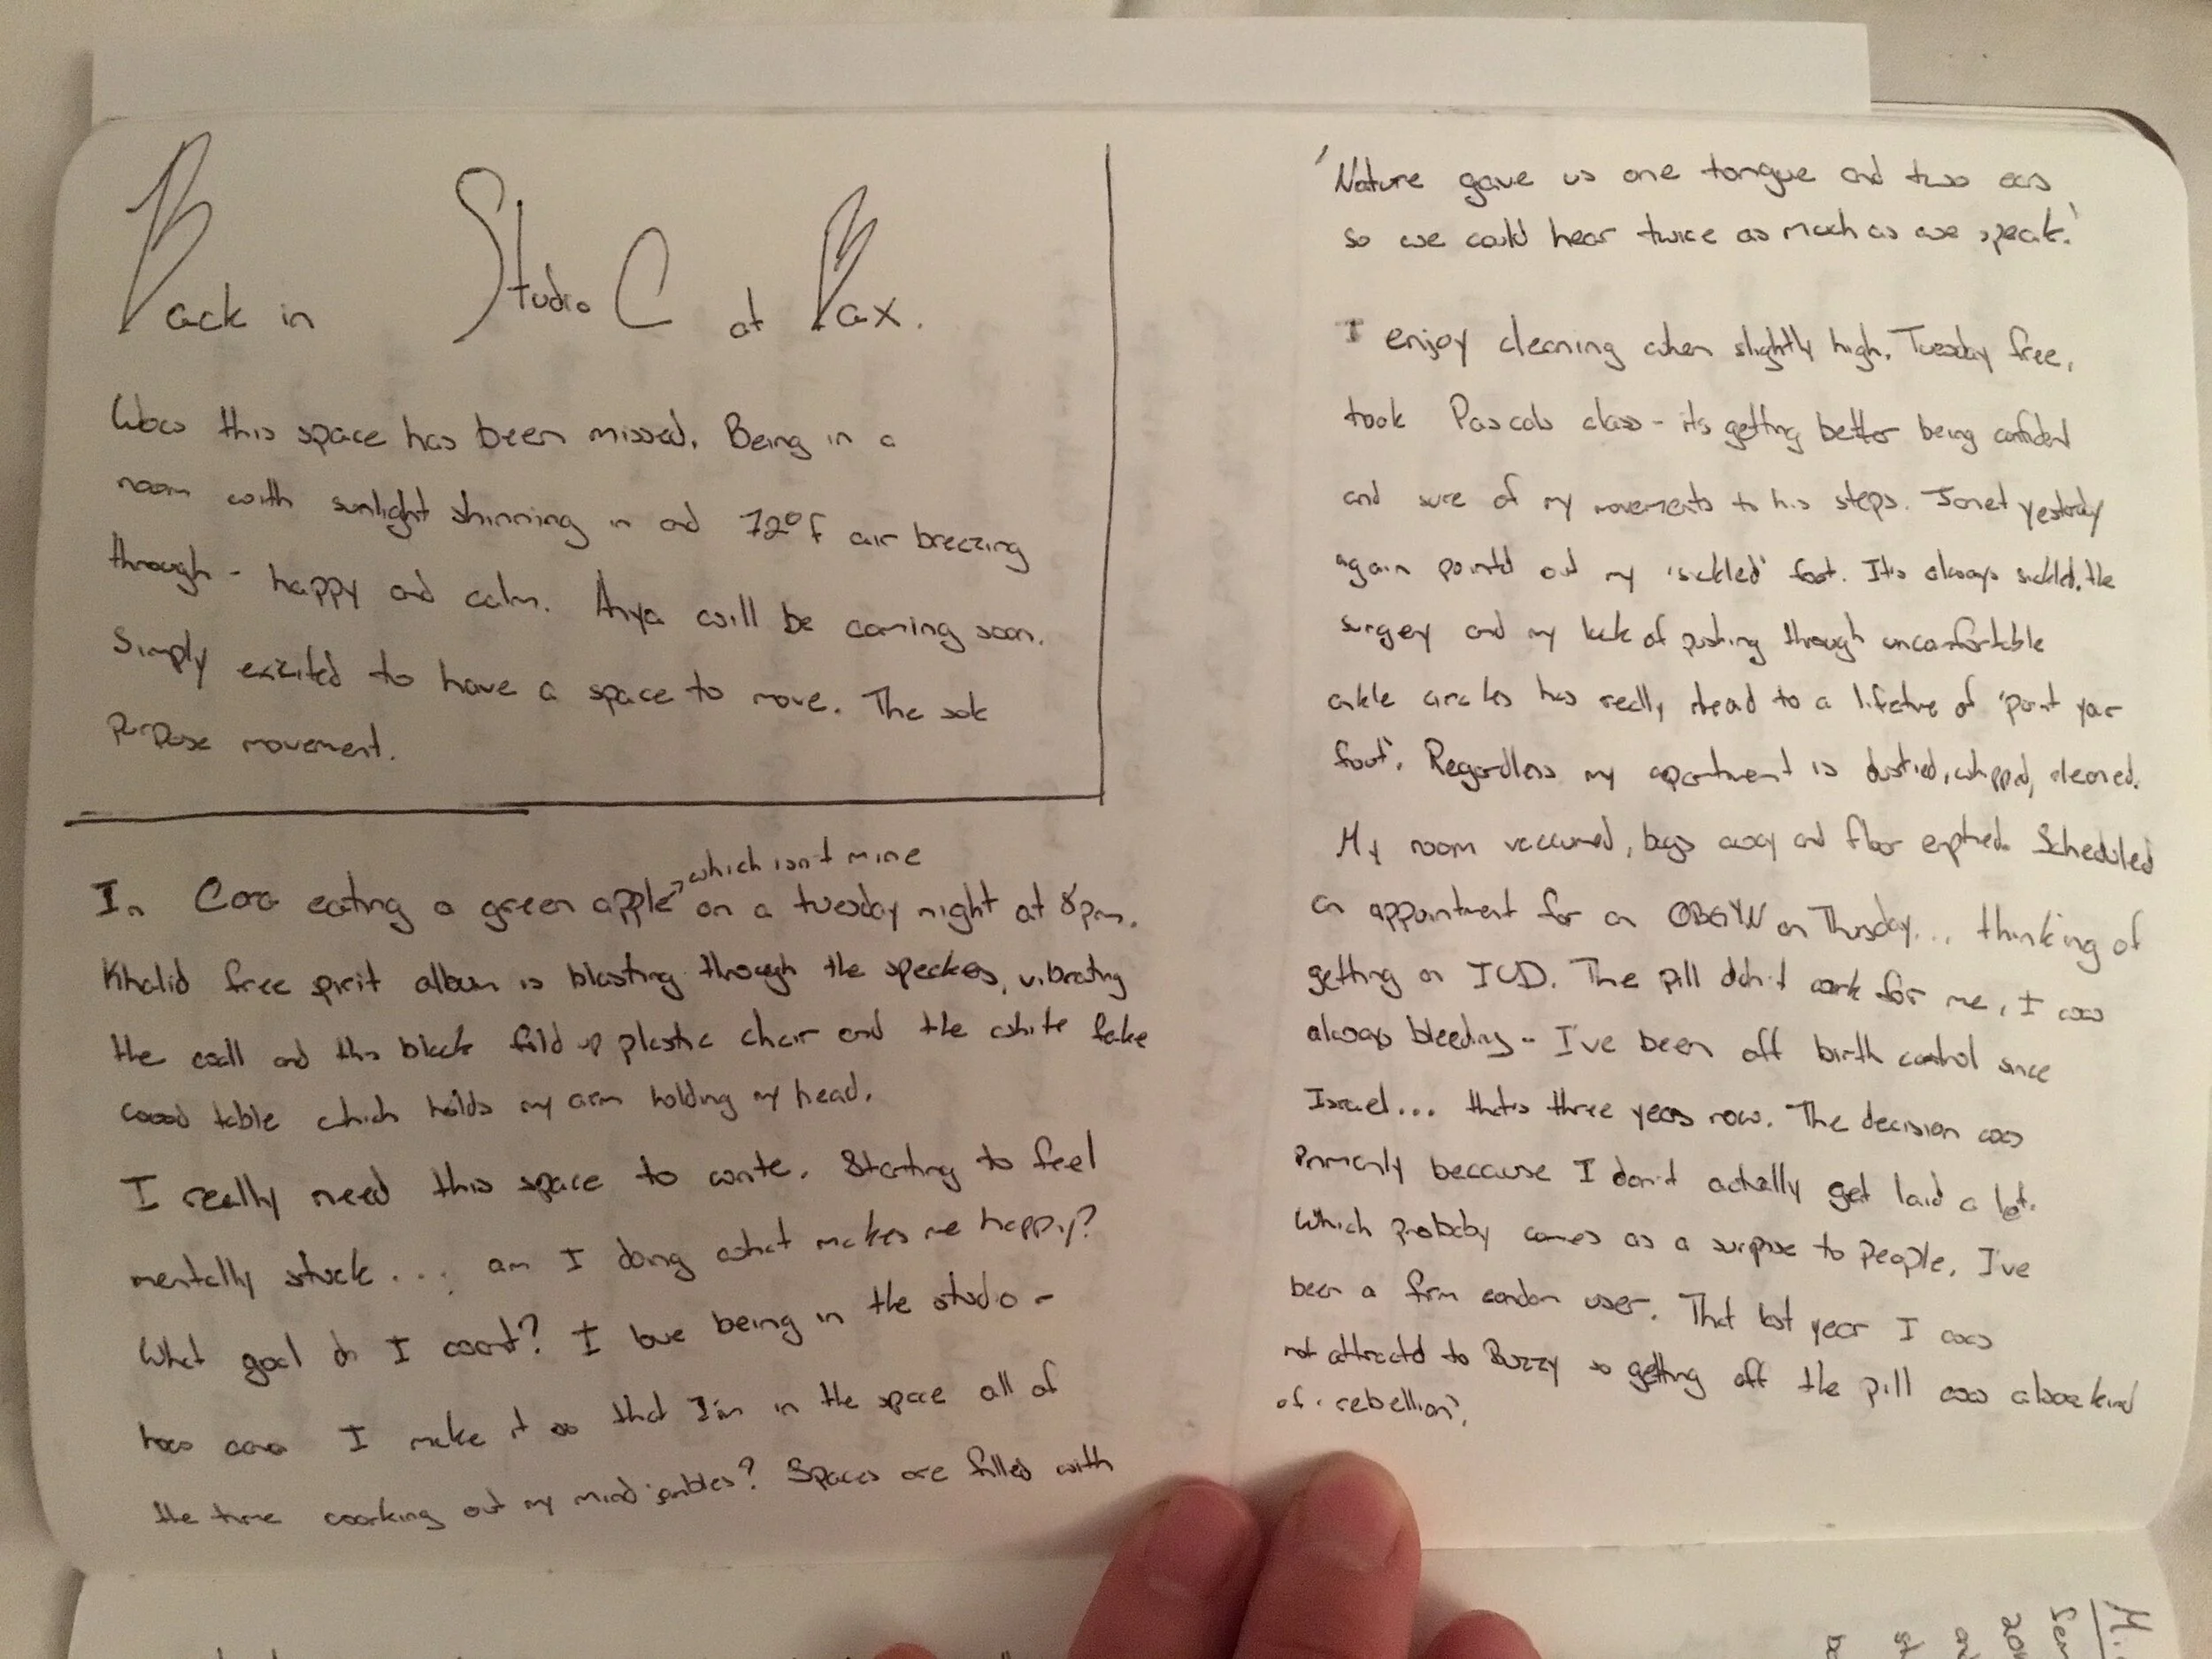 Back in Studio C at Bax.
Wow this space has been missed. Being in a
room with sunlight shinning in and 72°f air breezing
through - happy and calm. Anya will be coming soon.
Simply excited to have a space to move. The sole
purpose movement.
which isn't mine
In Cora eating a green apple on a tuesday night at 8pm.
Khalid free spirit album is blasting through the speakers, vibrating
the wall and this black fold up plastic chair and the white fake
wood table which holds my arm holding my head.
I really need this space to write. Starting to feel
mentally stuck... am I doing what makes me happy?
What goal do I want? I love being in the studio -
how can I make it so that I'm in the space all of
the time working out my mind jumbles? Spaces are filled with
'Nature gave us one tongue and two ears
so we could hear twice as much as we speak.'
I enjoy cleaning when slightly high. Tuesday free,
took Pascals class - its getting better being confident
and sure of my movements to his steps. Janet yesterday
again pointed out my 'sickled' foot. It's always sickled. the
surgery and my lack of pushing through uncomfortable
ankle circles has really lead to a lifetime of 'point your
foot'. Regardless my apartment is dustied, whipped, cleaned.
My room vaccumed, bags away and floor emptied. Scheduled
an appointment for an OBGYN on Thursday... thinking of
getting an IUD. The pill didn't work for me, I was
always bleeding - I've been off birth control since
Israel... that's three years now. The decision was
primarily because I don't actually get laid a lot.
Which probably comes as a surprise to people. I've
been a firm condom user. That last year I was
not attracted to Buzzy so getting off the pill was a
of 'rebellion'.